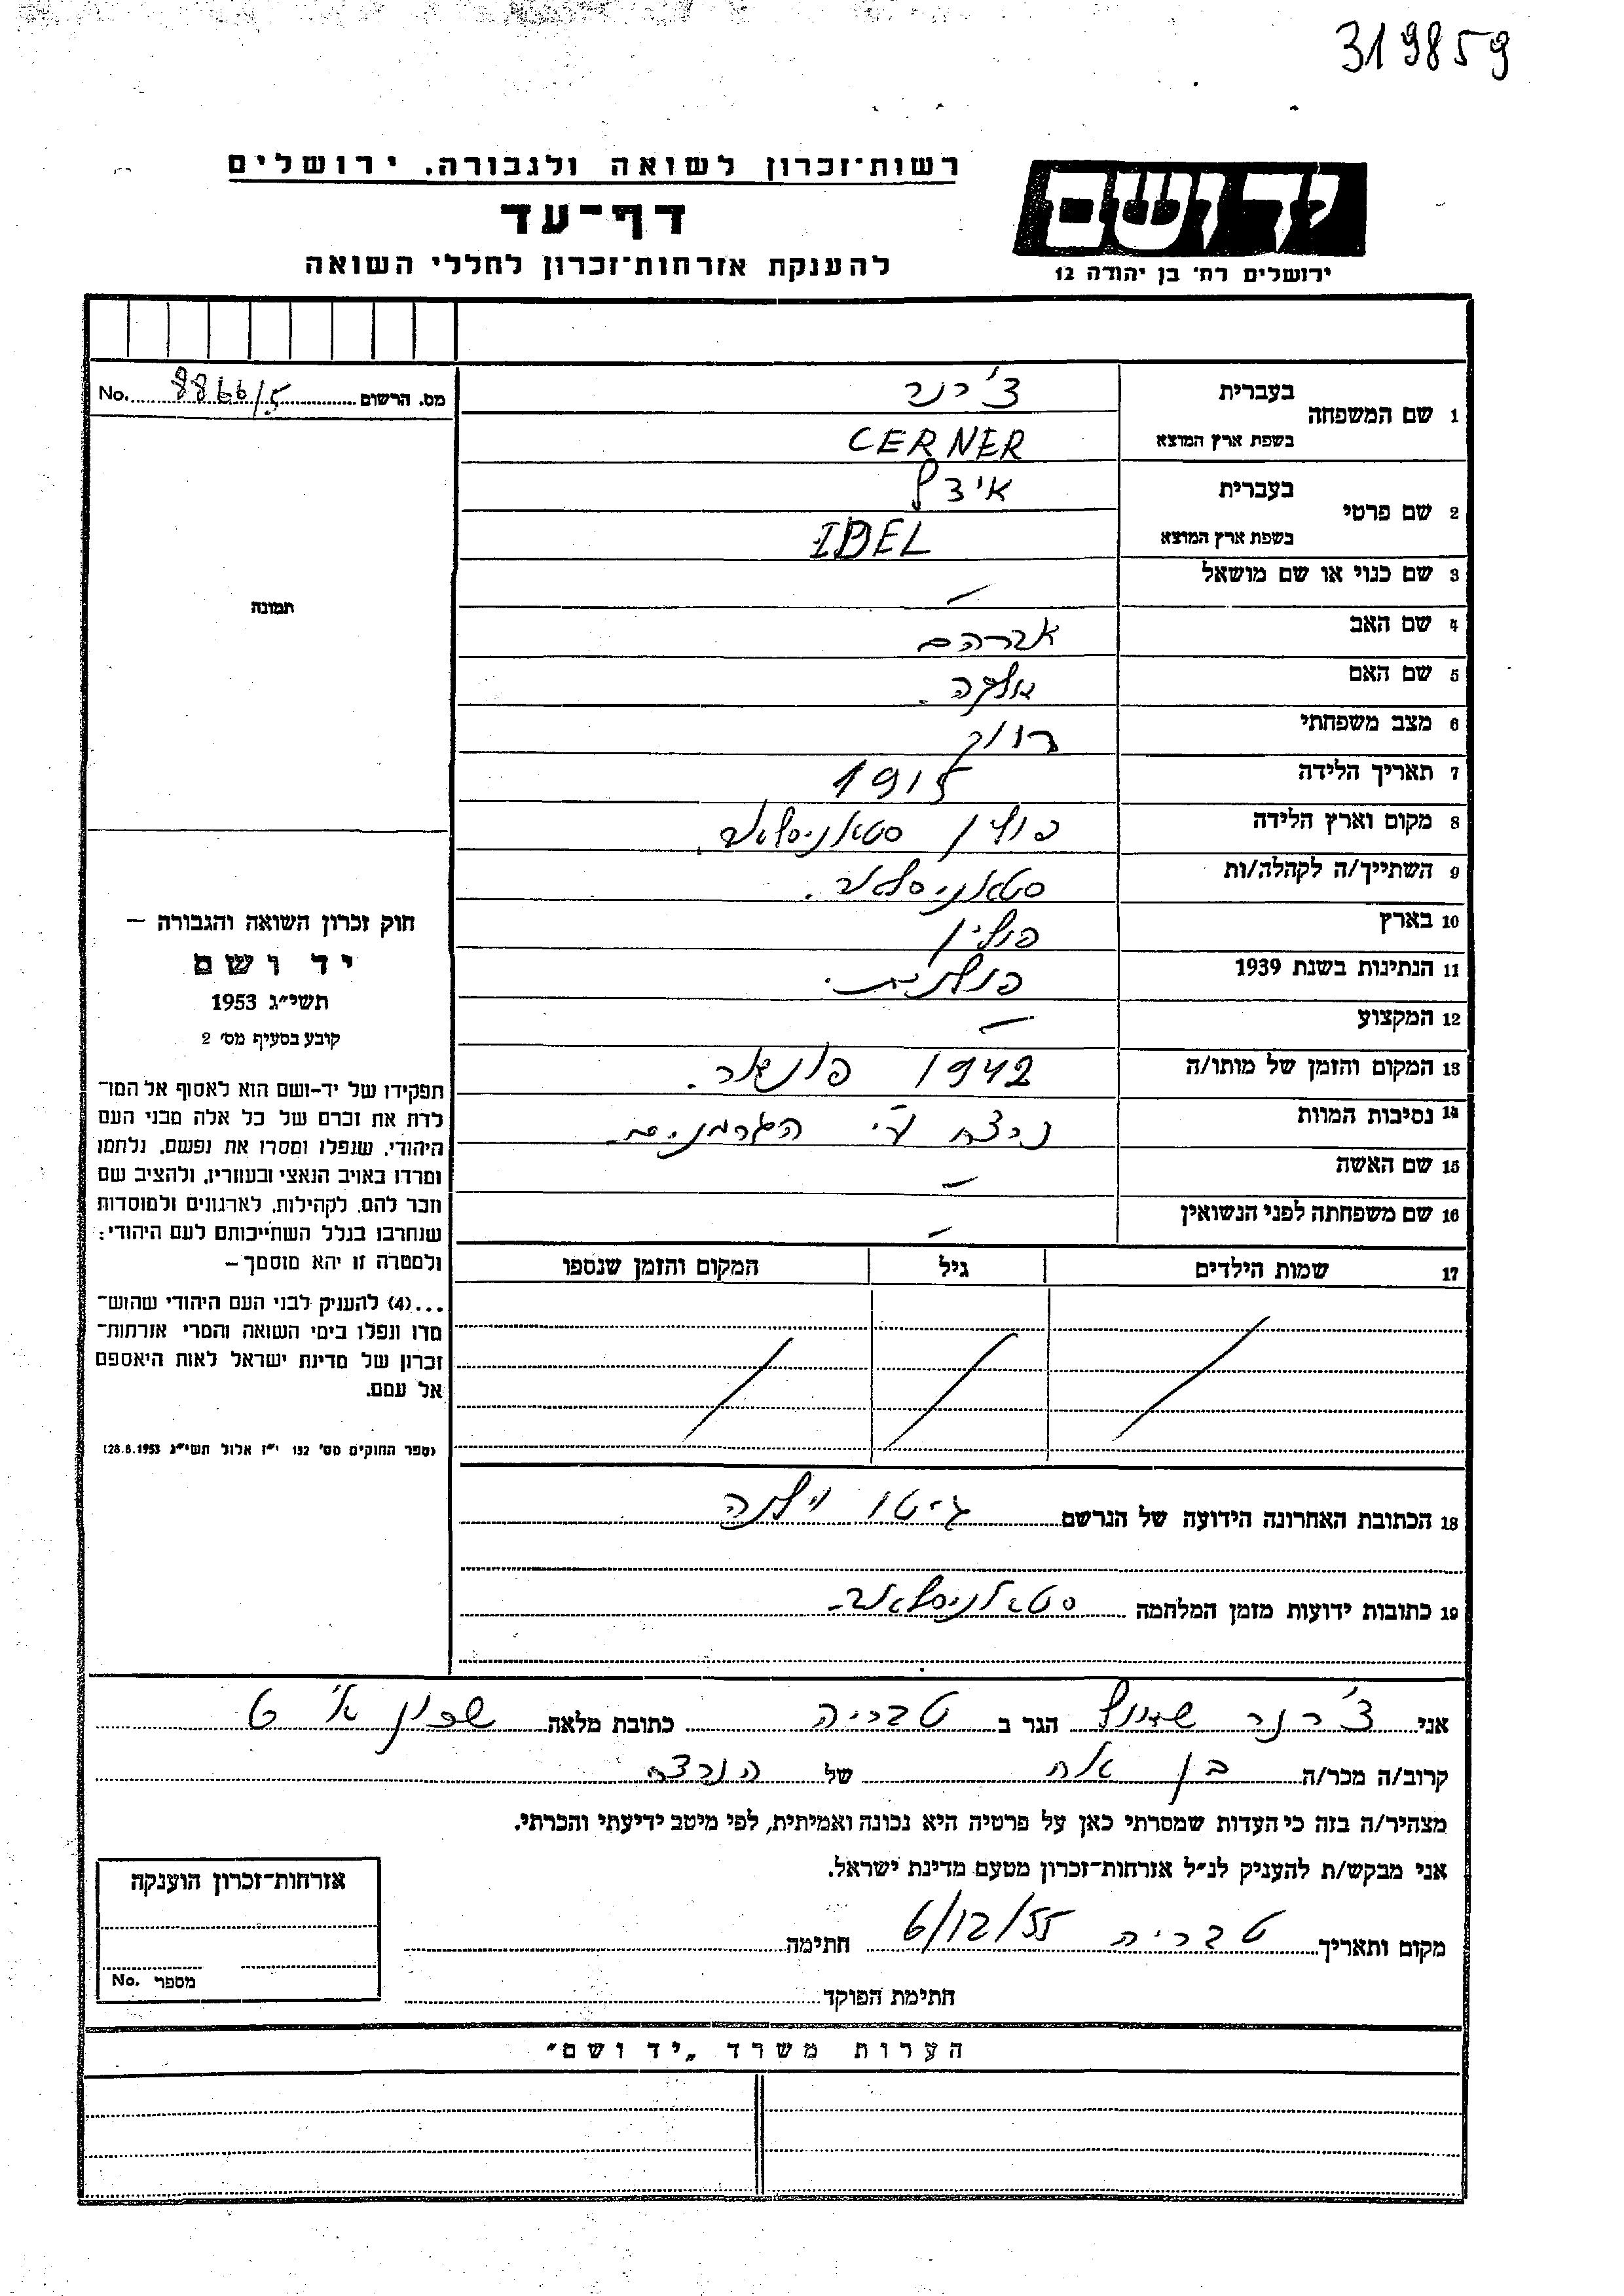 319859
רשות־זכרון לשואה ולגבורה, ירושלים
דף־עד
להענקת אזרחות־זכרון לחללי השואה
יד ושם
ירושלים רח׳ בן יהודה 12
מס. הרשום No. 8866/5
1 שם המשפחה בעברית צ׳רנר
בשפת ארץ המוצא CERNER
2 שם פרטי בעברית
בשפת ארץ המוצא
3 שם כנוי או שם מושאל –
4 שם האב אברהם
5 שם האם
6 מצב משפחתי רווק
7 תאריך הלידה 1915
8 מקום וארץ הלידה פולין סטאניסלאב.
9 השתייך/ה לקהלה/ות סטאניסלאב.
10 בארץ פולין
11 הנתינות בשנת 1939 פולנית.
12 המקצוע –
13 המקום והזמן של מותו/ה 1942 פונאר.
14 נסיבות המוות נרצח ע״י הגרמנים.
15 שם האשה –
16 שם משפחתה לפני הנשואין –
17 שמות הילדים גיל המקום והזמן שנספו
18 הכתובת האחרונה הידועה של הנרשם גיטו וילנה
19 כתובות ידועות מזמן המלחמה סטאניסלאב
תמונה
חוק זכרון השואה והגבורה –
יד ושם
תשי״ג 1953
קובע בסעיף מס׳ 2
תפקידו של יד-ושם הוא לאסוף אל המו־
לדת את זכרם של כל אלה מבני העם
היהודי, שנפלו ומסרו את נפשם, נלחמו
ומרדו באויב הנאצי ובעוזריו, ולהציב שם
וזכר להם, לקהילות, לארגונים ולמוסדות
שנחרבו בגלל השתייכותם לעם היהודי;
ולמטרה זו יהא מוסמך –
...(4) להעניק לבני העם היהודי שהוש־
מדו ונפלו בימי השואה והמרי אזרחות־
זכרון של מדינת ישראל לאות היאספם
אל עמם.
(ספר החוקים מס׳ 132 י״ז אלול תשי״ג 28.8.1953)
אני צ׳רנר הגר ב טבריה כתובת מלאה שכון א׳ 6
קרוב/ה מכר/ה בן אח של הנרצח
מצהיר/ה בזה כי העדות שמסרתי כאן על פרטיה היא נכונה ואמיתית, לפי מיטב ידיעתי והכרתי.
אני מבקש/ת להעניק לנ״ל אזרחות־זכרון מטעם מדינת ישראל.
מקום ותאריך טבריה 6/12/55 חתימה
חתימת הפוקד
אזרחות־זכרון הוענקה
מספר No.
הערות משרד „יד ושם״